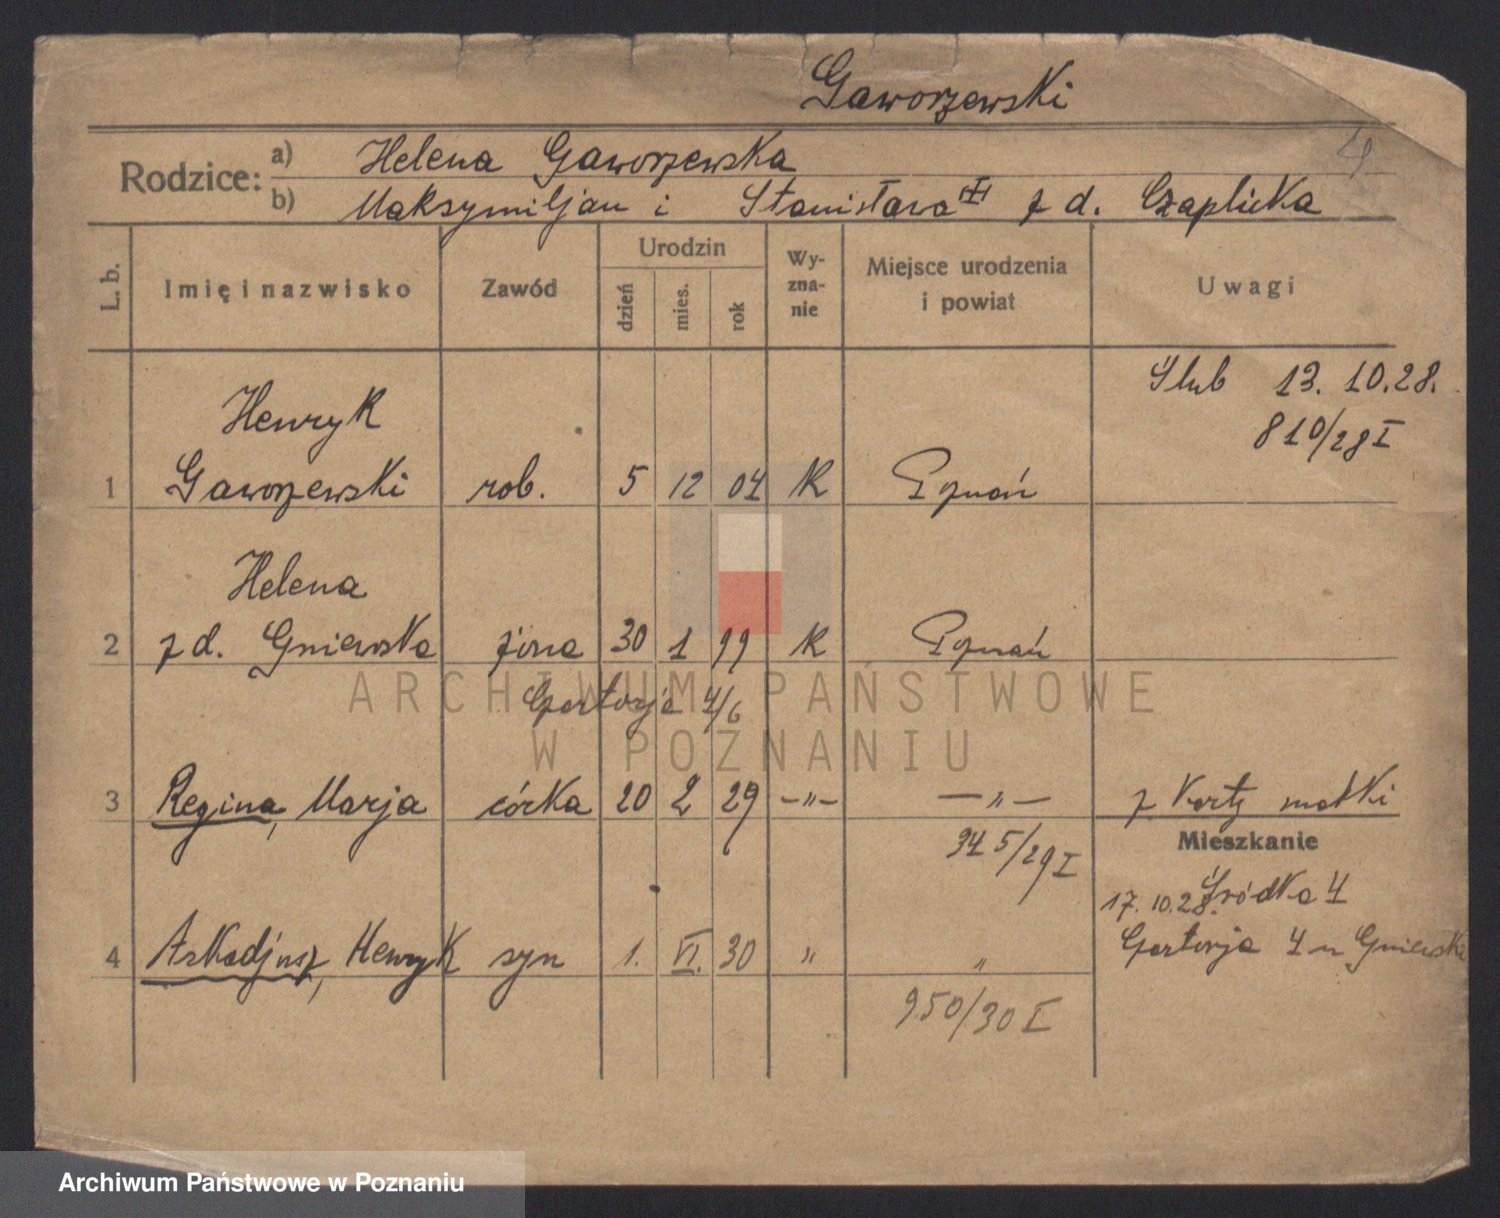 Gaworzewski
4
Rodzice: a) Helena Gaworzewska
b) Maksymiljan i Stanisława z d. Czaplicka
L. b. Imię i nazwisko Zawód Urodzin dzień mies. rok Wy-zna-nie Miejsce urodzenia i powiat Uwagi
Ślub 13. 10. 28.
810/28 I
Henryk
1 Gaworzewski rob. 5 12 04 K Poznań
Helena
2 z d. Gniewska żona 30 1 99 K Poznań
4/6
3 Regina, Marja córka 20 2 29 —"— —"— z karty matki
345/29 I
Mieszkanie
17. 10. 28. Śródka 4
4 Arkadjusz, Henryk syn 1. VI. 30 " "
4 u Gniewski
950/30 I
ARCHIWUM PAŃSTWOWE
W POZNANIU
Archiwum Państwowe w Poznaniu